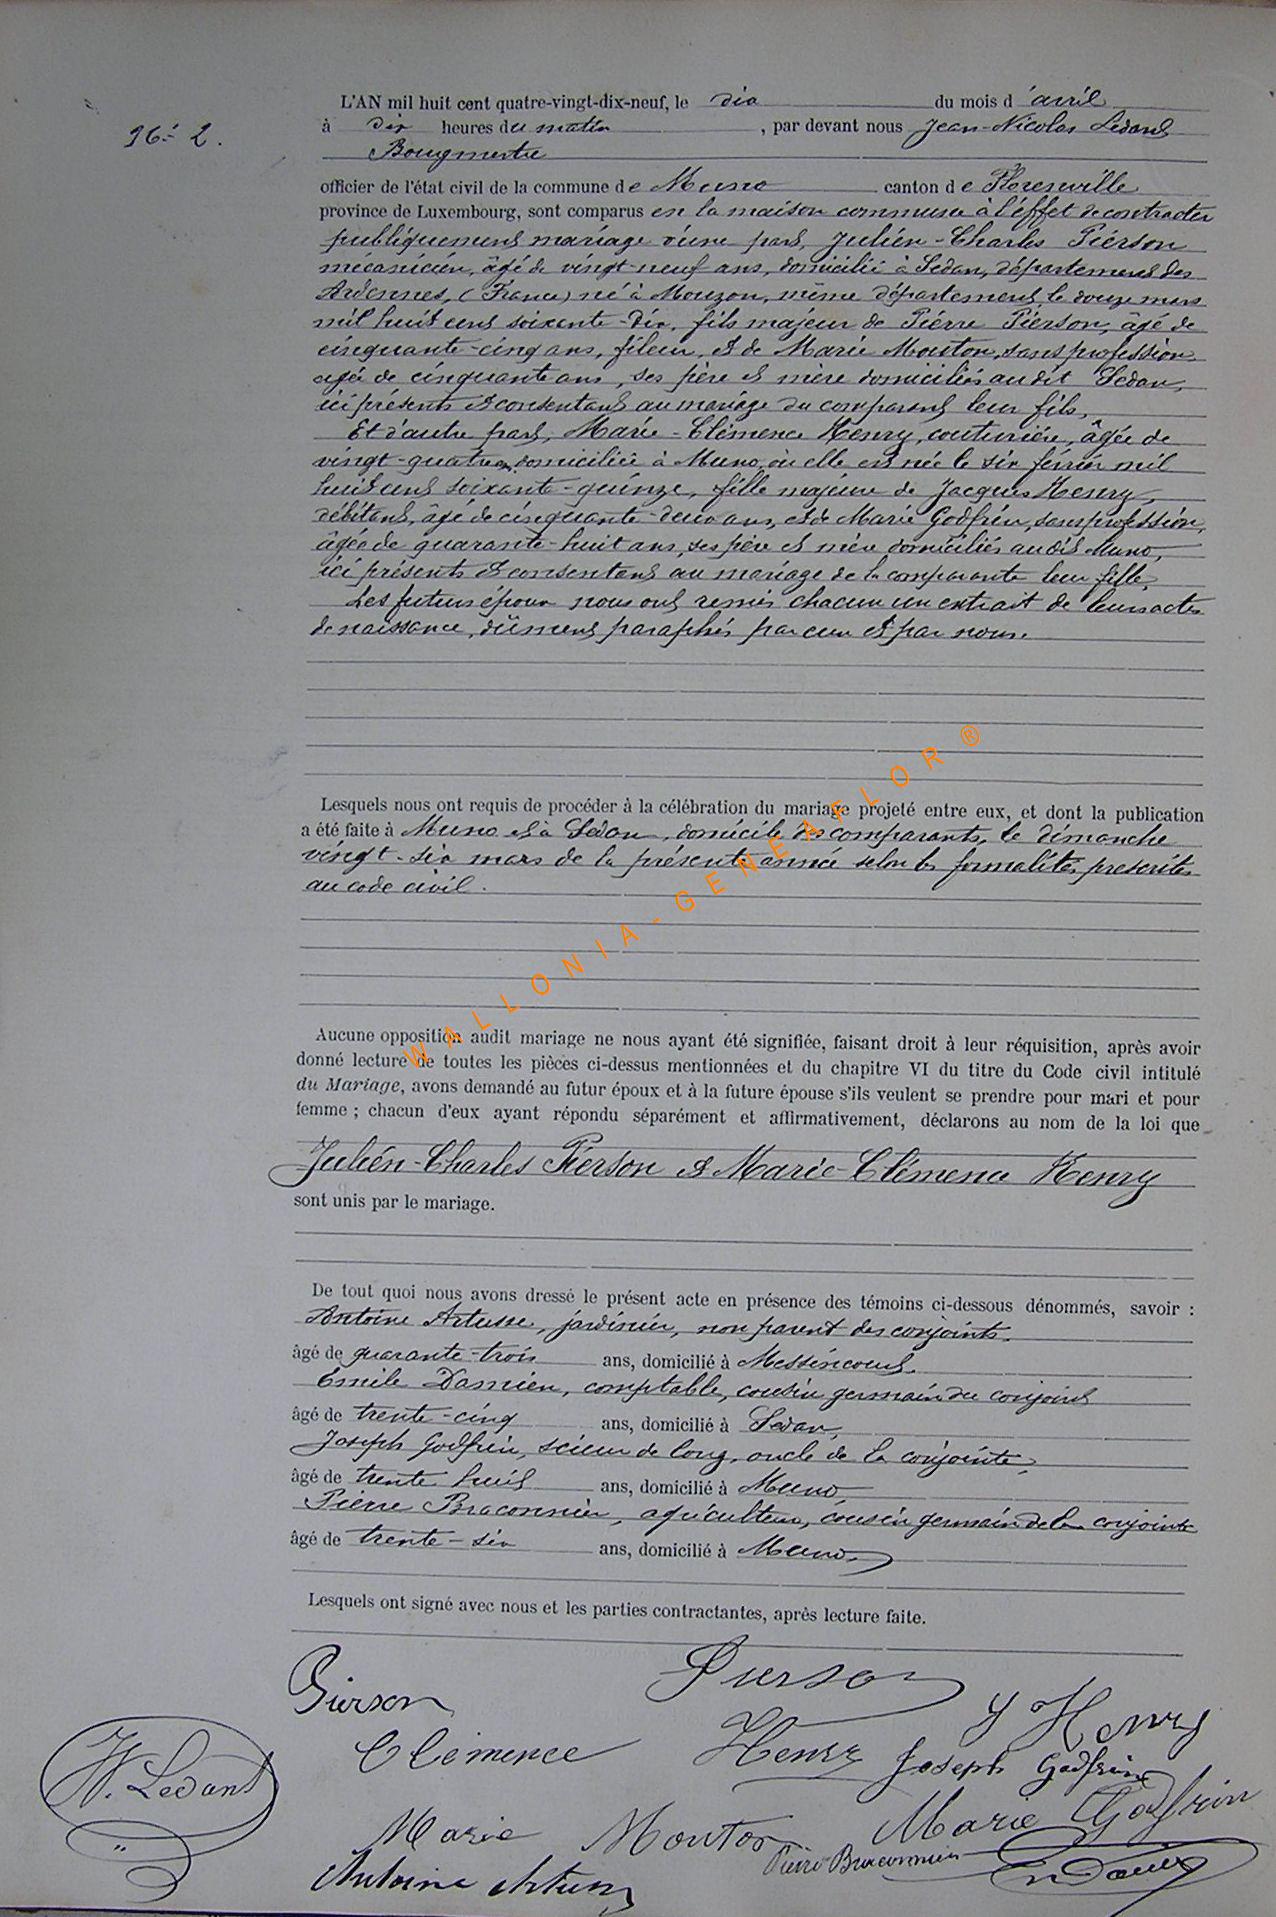 L'AN mil huit cent quatre-vingt-dix-neuf, le dix du mois d'avril
16è 2.
à dix heures du matin, par devant nous Jean-Nicolas Ledant
Bourgmestre
officier de l'état civil de la commune de Muno canton de Florenville
province de Luxembourg, sont comparus en la maison commune à l'effet de contracter
publiquement mariage d'une part, Julien-Charles Pierson
mécanicien, âgé de vingt-neuf ans, domicilié à Sedan, département des
Ardennes, (France) né à Mouzon, même département, le douze mars
mil huit cent soixante-dix, fils majeur de Pierre Pierson, âgé de
cinquante-cinq ans, fileur, et de Marie Mouton, sans profession
agée de cinquante ans, ses père et mère domiciliés audit Sedan,
ici présents et consentant au mariage du comparant leur fils,
Et d'autre part, Marie-Clémence Henry, couturière, âgée de
vingt-quatre ans, domiciliée à Muno, où elle est née le six février mil
huit cent soixante-quinze, fille majeure de Jacques Henry,
débitant, âgé de cinquante-deux ans, et de Marie Godfrin, sans profession,
âgée de quarante-huit ans, ses père et mère domiciliés audit Muno,
ici présents et consentant au mariage de la comparante leur fille,
Les futurs époux nous ont remis chacun un extrait de leurs actes
de naissance, dûment paraphés par eux et par nous.
Lesquels nous ont requis de procéder à la célébration du mariage projeté entre eux, et dont la publication
a été faite à Muno et à Sedan, domicile des comparants, le dimanche
vingt-six mars de la présente année selon les formalités prescrites
au code civil.
WALLONIA-GENEAFLOR ®
Aucune opposition audit mariage ne nous ayant été signifiée, faisant droit à leur réquisition, après avoir
donné lecture de toutes les pièces ci-dessus mentionnées et du chapitre VI du titre du Code civil intitulé
du Mariage, avons demandé au futur époux et à la future épouse s'ils veulent se prendre pour mari et pour
femme ; chacun d'eux ayant répondu séparément et affirmativement, déclarons au nom de la loi que
Julien-Charles Pierson et Marie-Clémence Henry
sont unis par le mariage.
De tout quoi nous avons dressé le présent acte en présence des témoins ci-dessous dénommés, savoir :
Antoine Artusse, jardinier, non parent des conjoints.
âgé de quarante-trois ans, domicilié à Messincourt.
Emile Damien, comptable, cousin germain du conjoint
âgé de trente-cinq ans, domicilié à Sedan,
Joseph Godfrin, scieur de long, oncle de la conjointe,
âgé de trente huit ans, domicilié à Muno,
Pierre Braconnier, agriculteur, cousin germain de la conjointe
âgé de trente-six ans, domicilié à Muno,
Lesquels ont signé avec nous et les parties contractantes, après lecture faite.
Pierson
Pierson
J Henry
Clémence Henry
Joseph Godfrin
N. Ledant
Marie Mouton
Marie Godfrin
Pierre Braconnier
Antoine